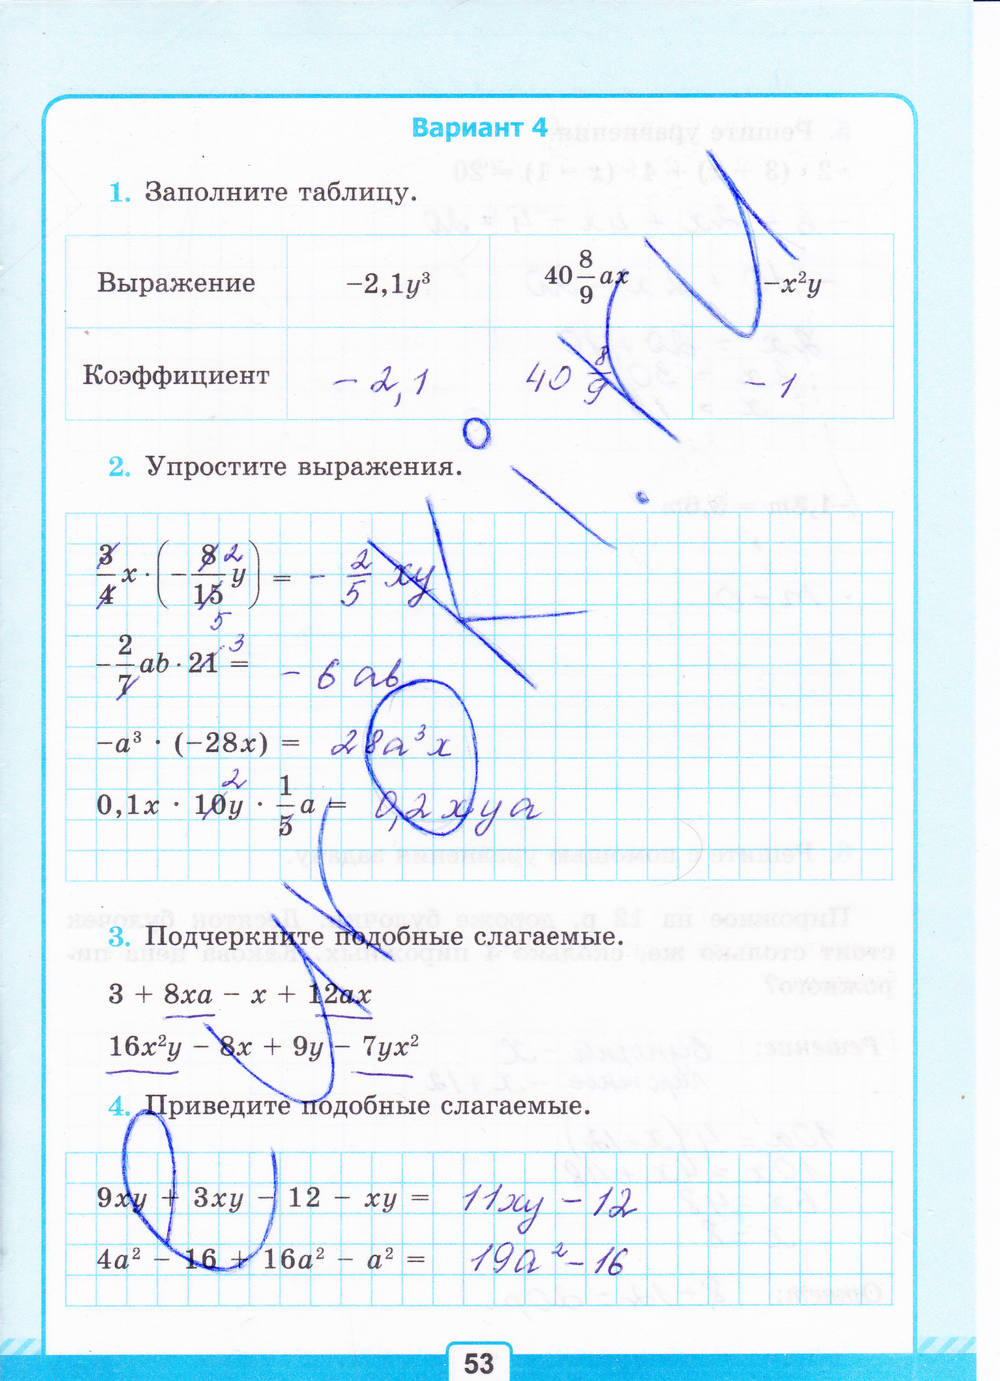 Вариант 4
1. Заполните таблицу.
Выражение −2,1y³ 40 8/9 ax −x²y
Коэффициент −2,1 40 8/9 −1
2. Упростите выражения.
3/4 x · (−8/15 y) = −2/5 xy
2
5
−2/7 ab · 21 = −6ab
3
−a³ · (−28x) = 28a³x
0,1x · 10y · 1/5 a = 0,2xya
2
3. Подчеркните подобные слагаемые.
3 + 8xa − x + 12ax
16x²y − 8x + 9y − 7yx²
4. Приведите подобные слагаемые.
9xy + 3xy − 12 − xy = 11xy − 12
4a² − 16 + 16a² − a² = 19a² − 16
53